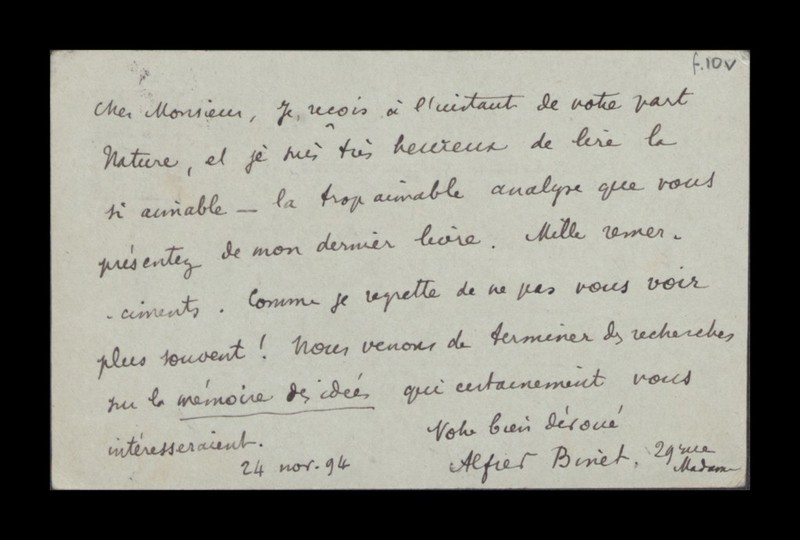 f.10v
Cher Monsieur, Je reçois à l'instant de votre part
Nature, et je suis très heureux de lire la
si aimable — la trop aimable analyse que vous
présentez de mon dernier livre. Mille remer-
-ciments. Comme je regrette de ne pas vous voir
plus souvent! Nous venons de terminer des recherches
sur la mémoire des idées qui certainement vous
intéresseraient.
Votre bien dévoué
24 nov. 94
Alfred Binet, 29 rue
Madame